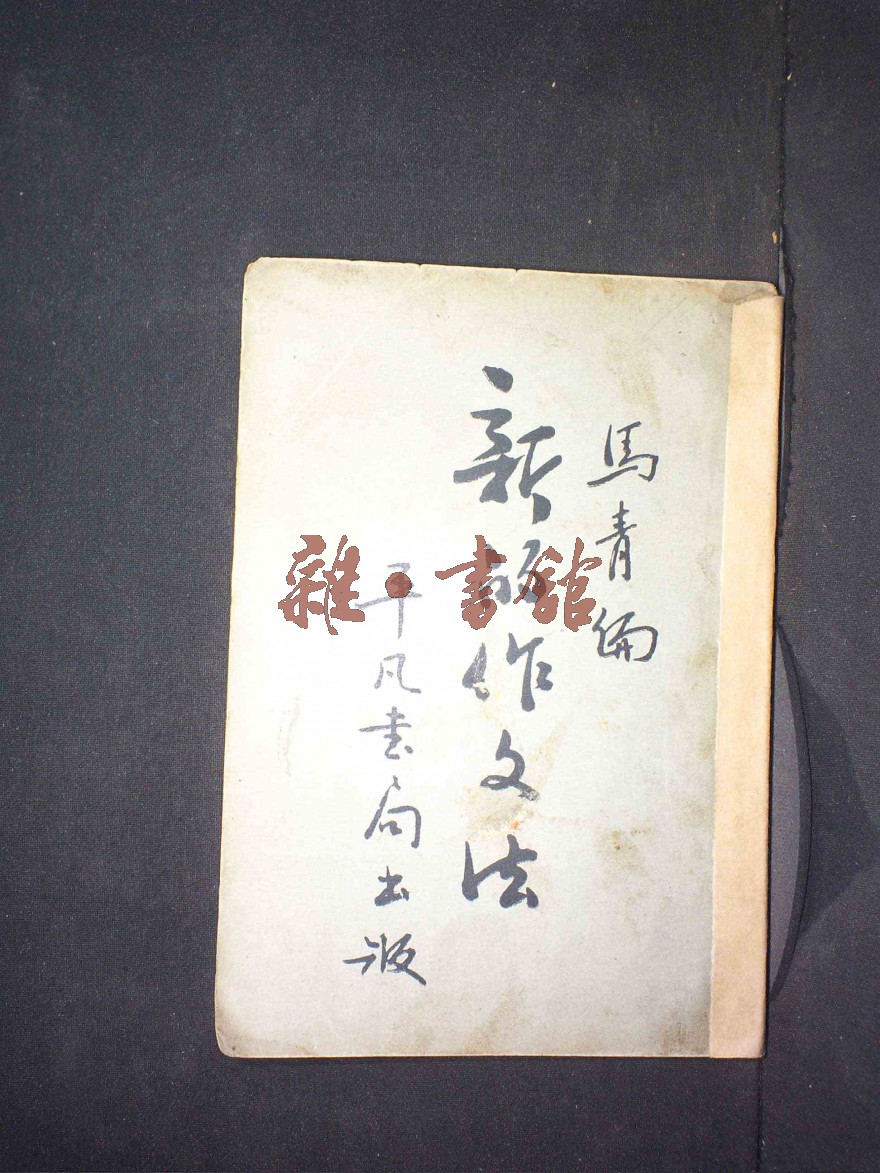 馬青編
新作文法
平凡書局出版
雜·書館